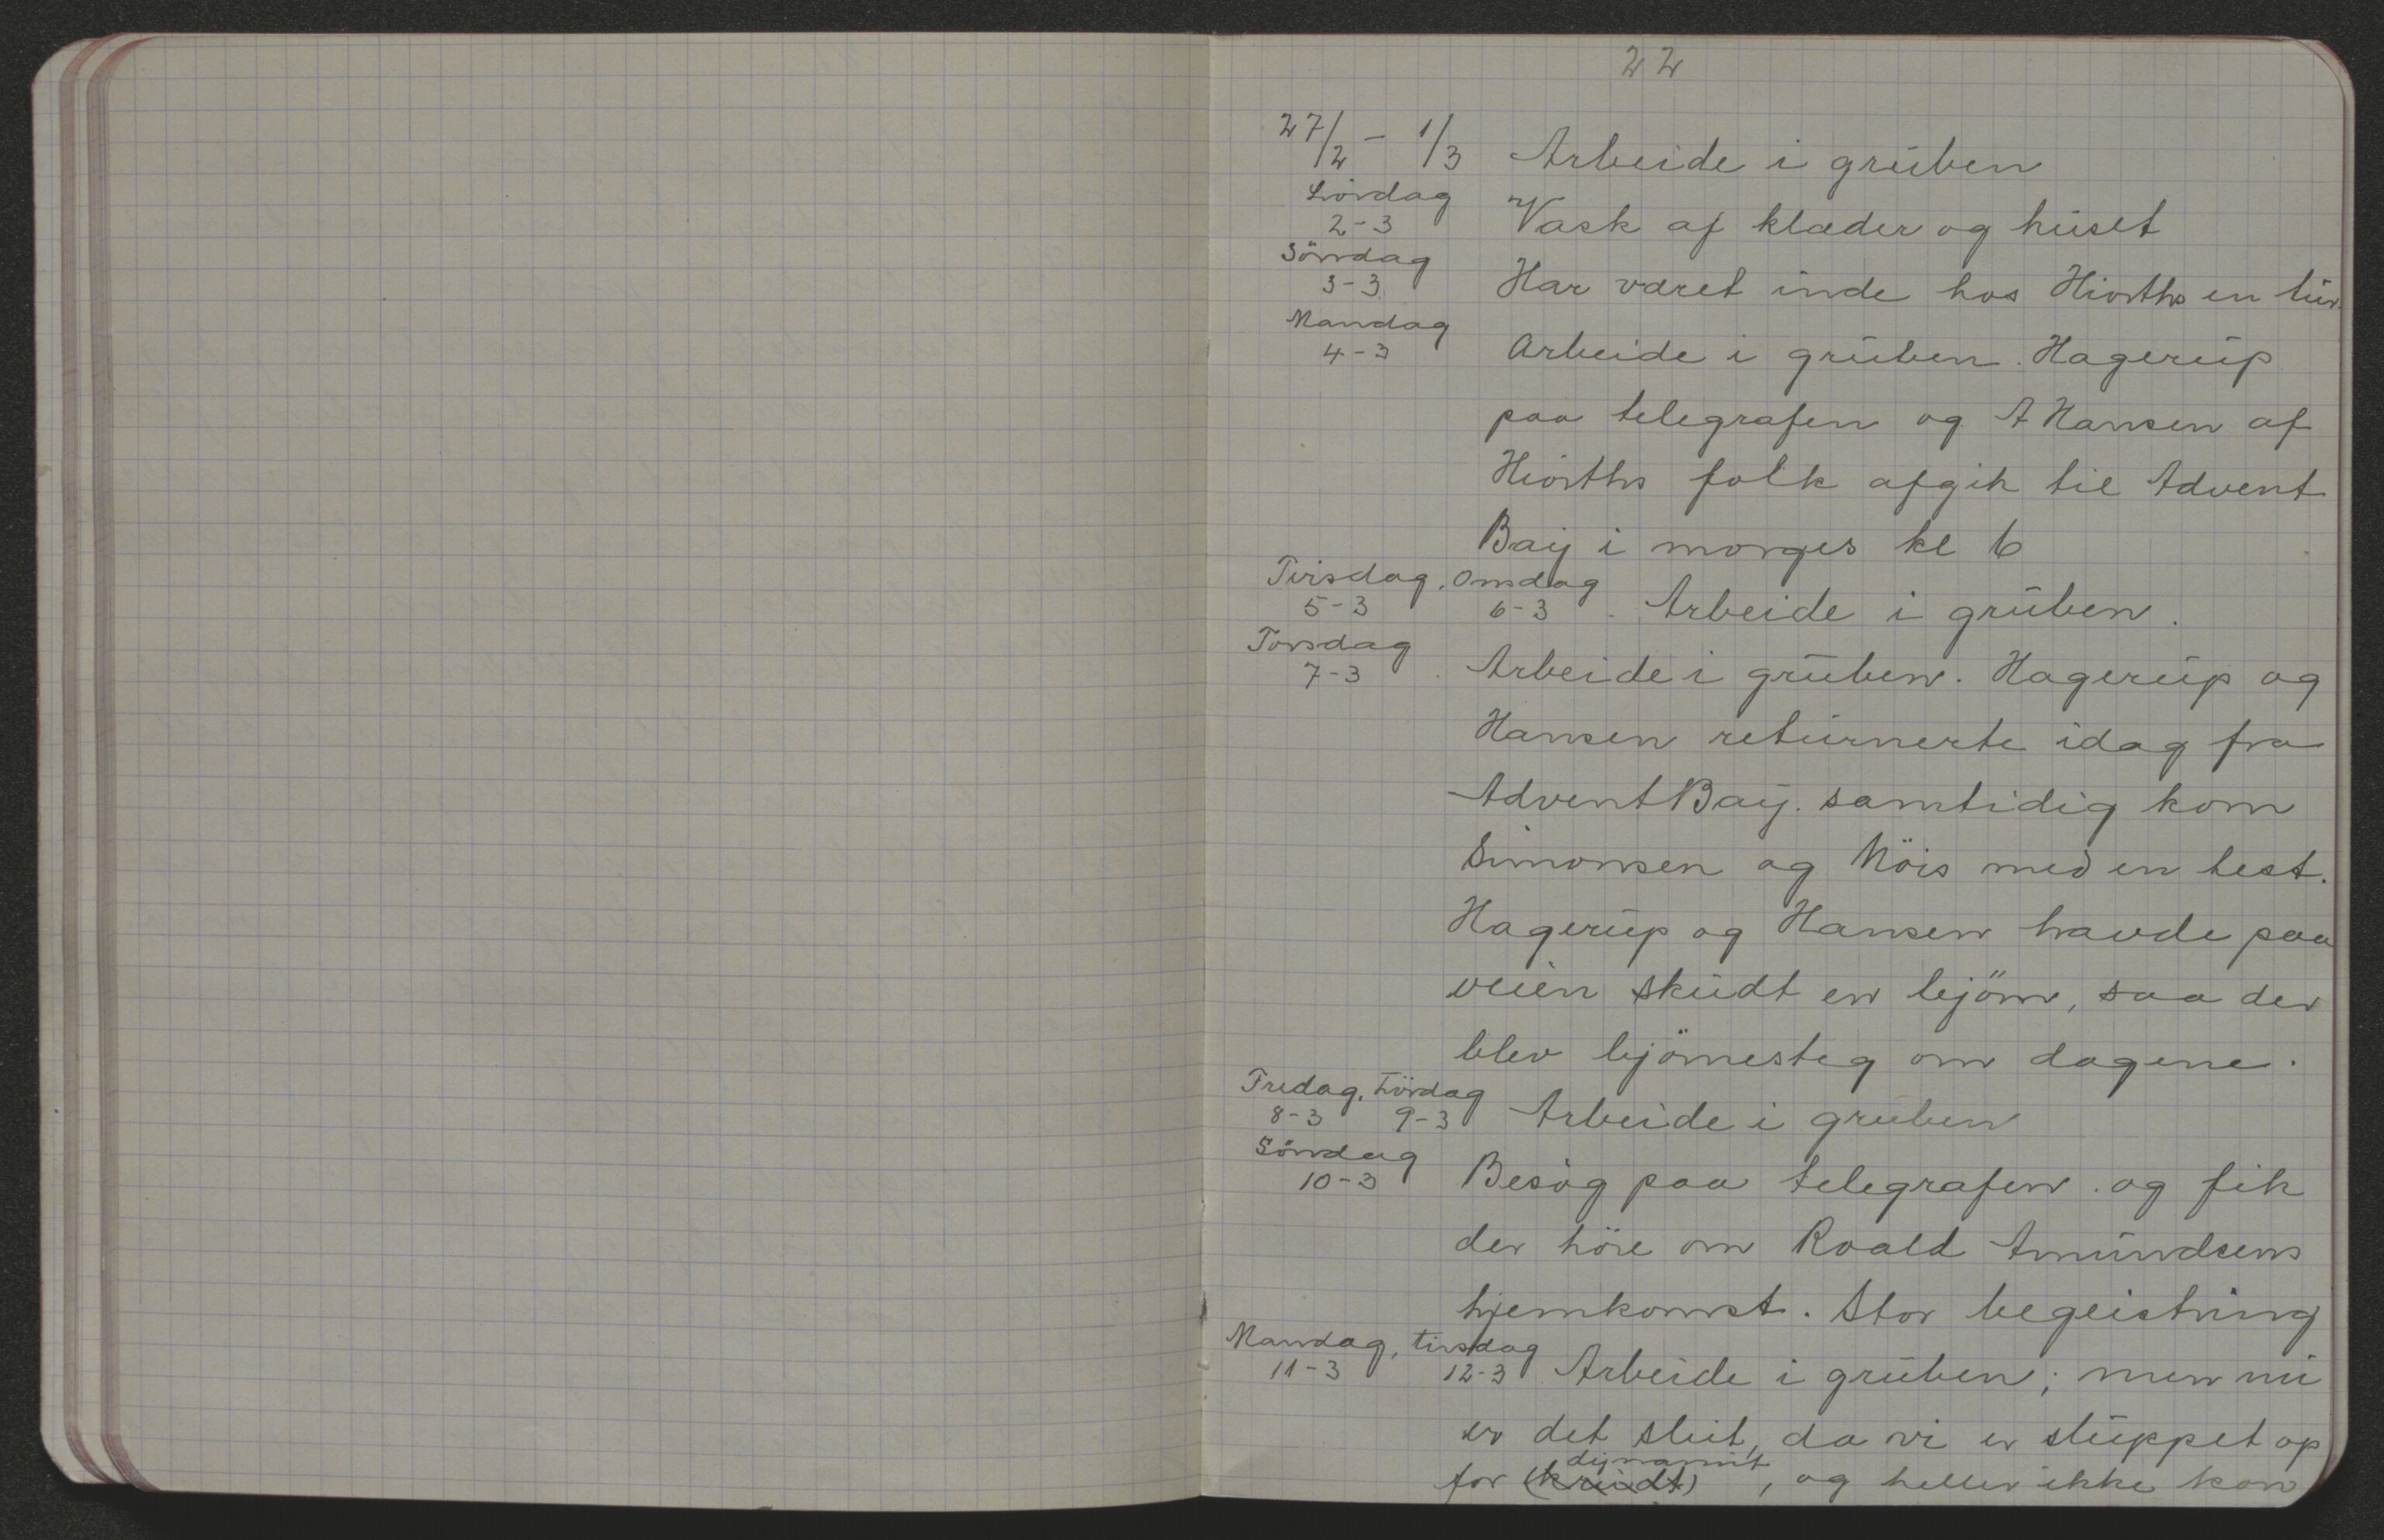 22
27/2 - 1/3 Arbeide i gruben
Lördag
2-3 Vask af klæder og huset
Söndag
3-3 Har været inde hos Hiorths en tur.
Mandag
4-3 Arbeide i gruben. Hagerup
paa telegrafen og A Hansen af
Hiorths folk afgik til Advent
Bay i morges kl 6
Tirsdag, Onsdag
5-3 6-3. Arbeide i gruben.
Torsdag
7-3. Arbeide i gruben. Hagerup og
Hansen returnerte idag fra
Advent Bay. samtidig kom
Simonsen og Nöis med en hest.
Hagerup og Hansen havde paa
veien skudt en björn, saa der
blev björnesteg om dagene.
Fredag, Lördag
8-3 9-3 Arbeide i gruben
Söndag
10-3 Besög paa telegrafen. og fik
der höre om Roald Amundsens
hjemkomst. Stor begeistring
Mandag, tirsdag
11-3 12-3 Arbeide i gruben; men nu
er det slut, da vi er sluppet op
dynamit
for (krudt), og heller ikke kan